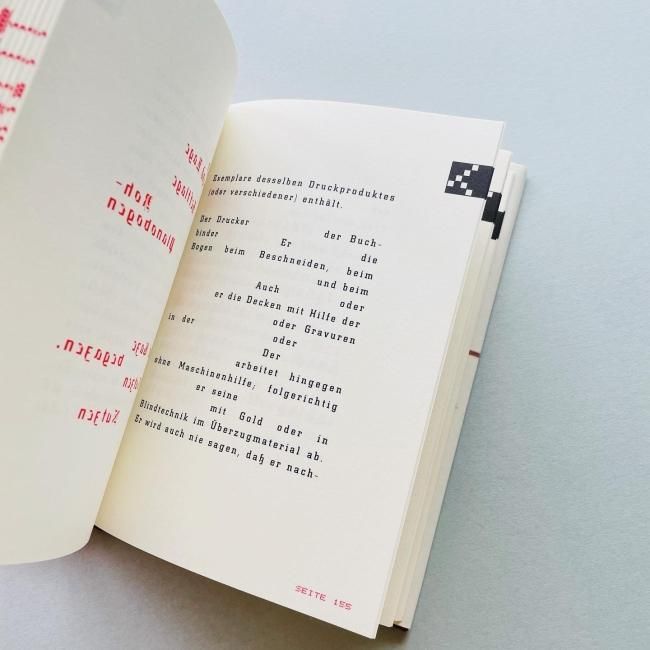 Exemplare desselben Druckproduktes
(oder verschiedener) enthält.
Der Drucker der Buch-
binder Er die
Bogen beim Beschneiden, beim
und beim
Auch oder
er die Decken mit Hilfe der
in der oder Gravuren
oder
Der
arbeitet hingegen
ohne Maschinenhilfe; folgerichtig
er seine
mit Gold oder in
Blindtechnik im Überzugmaterial ab.
Er wird auch nie sagen, daß er nach-
SEITE 155